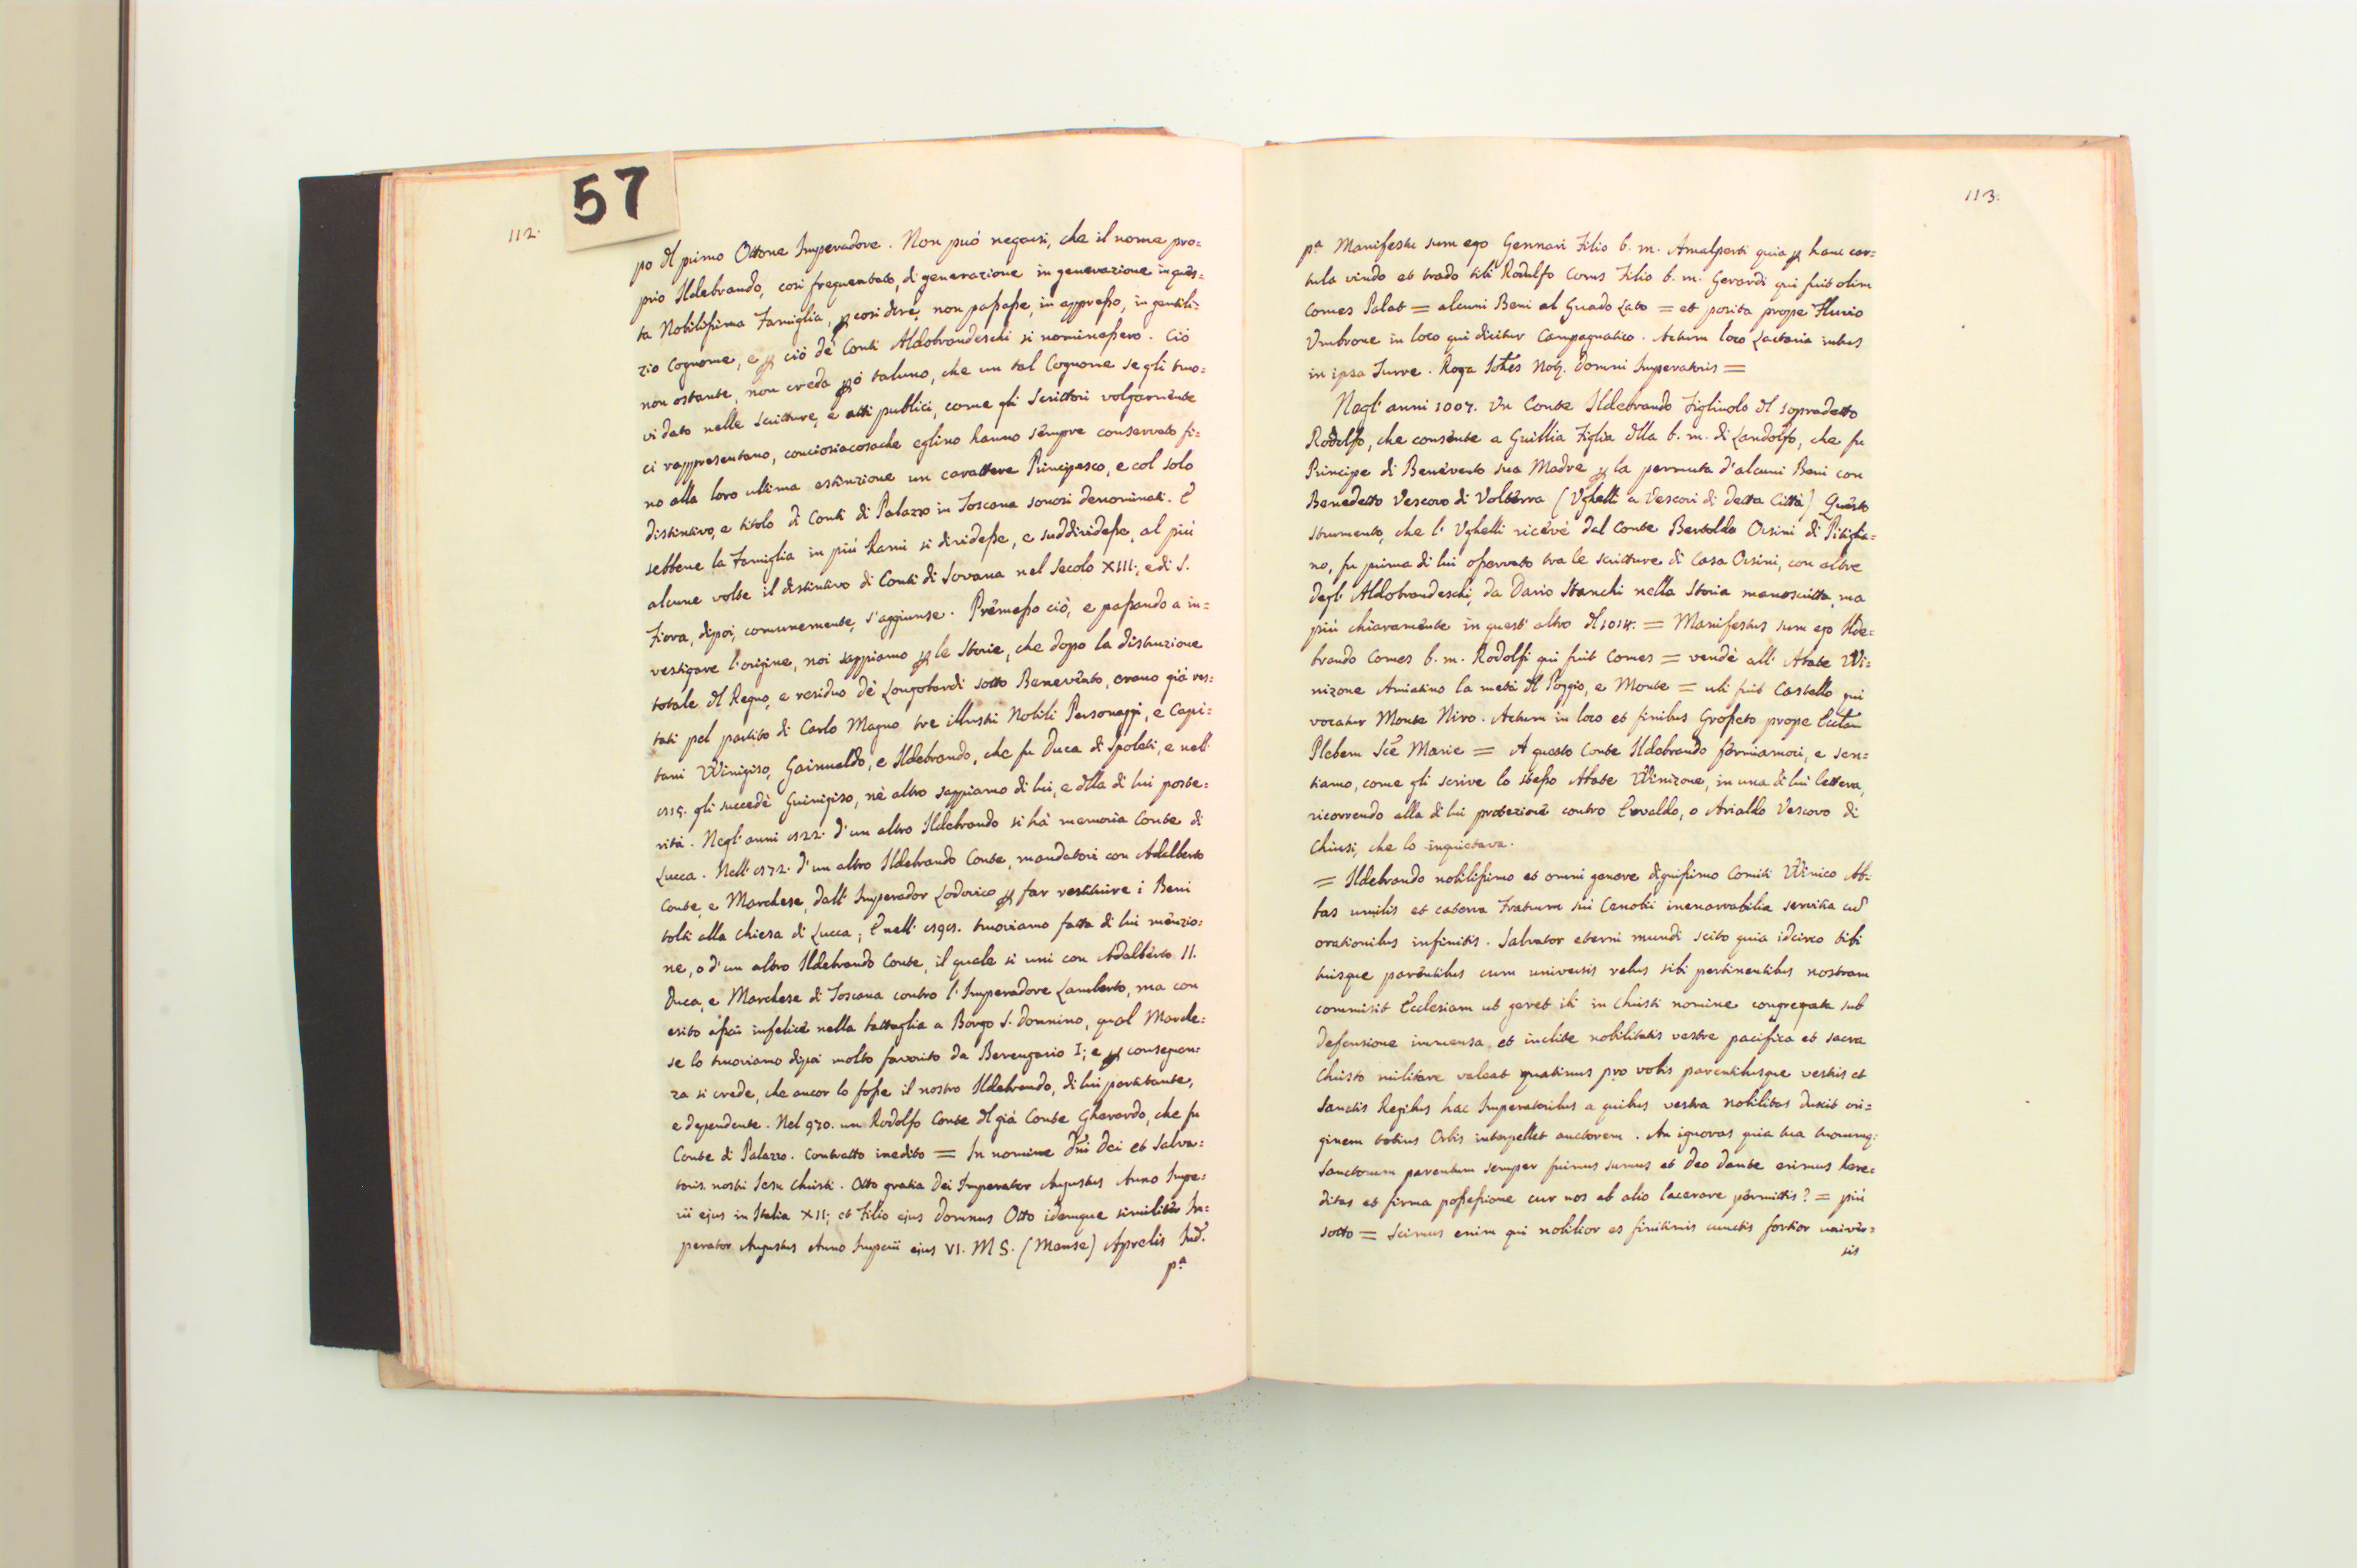 57
112.
po dl primo Ottone Imperadore. Non può negarsi, che il nome pro=
prio Ildebrando, così frequentato, di generazione in generazione in ques=
ta Nobilissima Famiglia, p così dire, non passasse, in appresso, in gentili=
zio Cognome, e p ciò de' Conti Aldobrandeschi si nominassero. Ciò
non ostante, non creda pò taluno, che un tal Cognome se gli truo=
vi dato nelle Scritture, e atti publici, come gli Scrittori volgarmente
ci rappresentano, conciosiacosache eglino hanno sempre conservato fi=
no alla loro ultima estinzione un carattere Principesco, e col solo
distintivo, e titolo di Conti di Palazzo in Toscana sonosi denominati. E
sebbene la Famiglia in più Rami si dividesse, e suddividesse, al più
alcune volte il distintivo di Conti di Sovana nel Secolo XIII:, e di S.
Fiora, dipoi, comunemente, s'aggiunse. Premesso ciò, e passando a in=
vestigare l'origine, noi sappiamo p le Storie, che dopo la distruzione
totale dl Regno, e residuo de' Longobardi sotto Benevento, erano già res=
tati pel partito di Carlo Magno tre illustri Nobili Personaggi, e Capi=
tani Winigiso, Gaimualdo, e Ildebrando, che fu Duca di Spoleti, e nell'
815. gli succedè Guinigiso, nè altro sappiamo di lui, e dlla di lui poste=
rità. Negl'anni 822. d'un altro Ildebrando si hà memoria Conte di
Lucca. Nell' 872. d'un altro Ildebrando Conte, mandatori con Adalberto
Conte, e Marchese, dall' Imperador Lodovico p far restituire i Beni
tolti alla Chiesa di Lucca; E nell' 898. truoviamo fatta di lui menzio=
ne, o d'un altro Ildebrando Conte, il quale si unì con Adalberto II.
Duca, e Marchese di Toscana contro l'Imperadore Lamberto, ma con
esito assai infelice nella battaglia a Borgo S. Donnino, qual Marche=
se lo truoviamo dipoi molto favorito da Berengario I; e p conseguen=
za si crede, che ancor lo fosse il nostro Ildebrando, di lui partitante,
e dependente. Nel 970. un Rodolfo Conte dl già Conte Gherardo, che fu
Conte di Palazzo. Contratto inedito = In nomine Dñi Dei et Salva=
toris nostri Iesu Christi. Otto gratia Dei Imperator Augustus Anno Impe=
rii ejus in Italia XII; et Filio ejus Domnus Otto idemque similiter Im=
perator Augustus Anno Imperii ejus VI. M S. (Mense) Aprelis Ind.
pª
113.
pª Manifestu sum ego Gennari Filio b. m. Amalperti quia p hanc car=
tula vindo et trado tibi Rodulfo Comes Filio b. m. Gerardi qui fuit olim
Comes Palat = alcuni Beni al Guado Lato = et posita prope Fluvio
Umbrone in loco qui dicitur Campagnatico. Actum loco Lactaria intus
in ipsa Turre. Roga Iohes Not. Domni Imperatoris =
Negl'anni 1007. Un Conte Ildebrando Figliuolo dl sopradetto
Rodolfo, che consente a Guillia Figlia dlla b. m. di Landolfo, che fu
Principe di Benevento sua Madre p la permuta d'alcuni Beni con
Benedetto Vescovo di Volterra (Ughelli a Vescovi di detta Città) Questo
strumento, che l'Ughelli ricevè dal Conte Bertoldo Orsini di Pitiglia=
no, fu prima di lui osservato tra le scritture di Casa Orsini, con altre
degl' Aldobrandeschi, da Dario Stanchi nella Storia manoscritta, ma
più chiaramente in quest' altro dl 1014. = Manifestus sum ego Ilde=
brando Comes b. m. Rodolfi qui fuit Comes = vendè all' Abate Wi=
nizone Amiatino la metà dl Poggio, e Monte = ubi fuit Castello qui
vocatur Monte Niro. Actum in loco et finibus Grosseto prope Ecclam
Plebem Scē Marie = A questo Conte Ildebrando fermiamoci, e sen=
tiamo, come gli scrive lo stesso Abate Winizone, in una di lui lettera,
ricorrendo alla di lui protezione contro Erevaldo, o Arialdo Vescovo di
Chiusi, che lo inquietava.
= Ildebrando nobilissimo et omni genere dignissimo Comiti Winico Ab=
bas umilis et caterva Fratrum sui Cenobii inenarrabilia servitia cũ
orationibus infinitis. Salvator eterni mundi scito quia idcirco tibi
tuisque parentibus cum universis rebus tibi pertinentibus nostram
commisit Ecclesiam ut geret ibi in Christi nomine congregata sub
defensione immensa et inclite nobilitatis vestre pacifica et sacra
Christo militare valeat quatinus pro vobis parentibusque vestris et
Sanctis Regibus hac Imperatoribus a quibus vestra nobilitas duxit ori=
ginem totius Orbis interpellet auctorem. An ignoras quia tua tuorumq:
Sanctorum parentum semper fuimus sumus et Deo dante erimus here=
ditas et firma possessione cur nos ab alio lacerare permittis? = più
sotto = Scimus enim qui nobilior es finitimis cunctis fortior univer=
sis